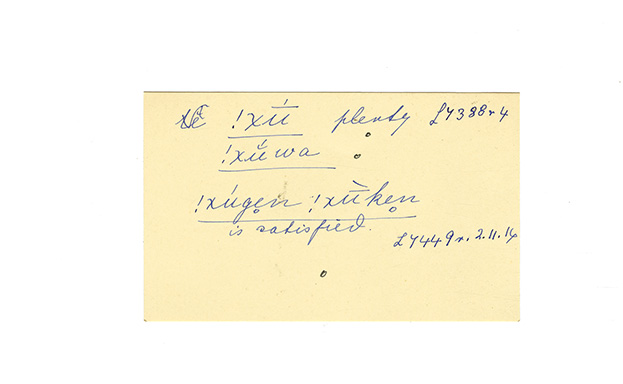 !xú plenty L 7388 r. 4
!xúwa
!xúgen !xùken
is satisfied.
L 7449 r. 2.11.14